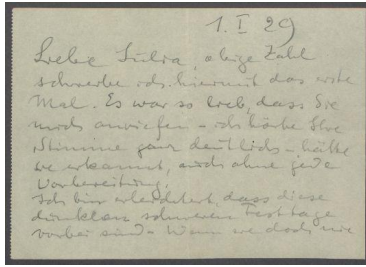 1. I 29
Liebe Lulia, obige Zahl
schreibe ich hiermit das erste
Mal. Es war so lieb, dass Sie
mich anriefen – ich hörte Ihre
Stimme ganz deutlich – hätte
sie erkannt, auch ohne jede
Vorbereitung.
Ich bin erleichtert, dass diese
dunklen schweren Festtage
vorbei sind. Wenn sie doch nie